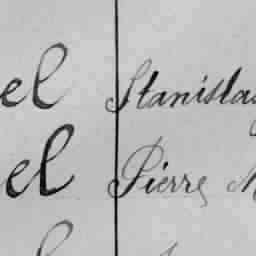 el Stanislas
el Pierre M